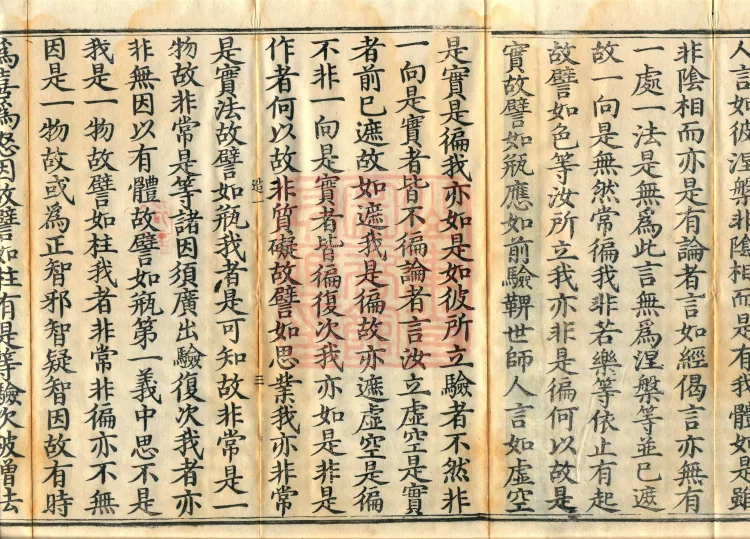 人言如彼涅槃非陰相而是有我體如是雖
非陰相而亦是有論者言如經偈言亦無有
一處一法是無為此言無為涅槃等並已遮
故一向是無然常徧我非若樂等依止有起
故譬如色等汝所立我亦非是徧何以故是
實故譬如瓶應如前驗鞞世師人言如虛空
是實是徧我亦如是如彼所立驗者不然非
一向是實者皆不徧論者言汝立虛空是實
者前已遮故如遮我是徧故亦遮虛空是徧
不非一向是實者皆徧復次我亦如是非是
作者何以故非質礙故譬如思業我亦非常
是實法故譬如瓶我者是可知故非常是一
物故非常是等諸因須廣出驗復次我者亦
非無因以有體故譬如瓶第一義中思不是
我是一物故譬如柱我者非常非徧亦不無
因是一物故或為正智邪智疑智因故有時
為喜為怒因故譬如柱有是等驗次破僧佉
三